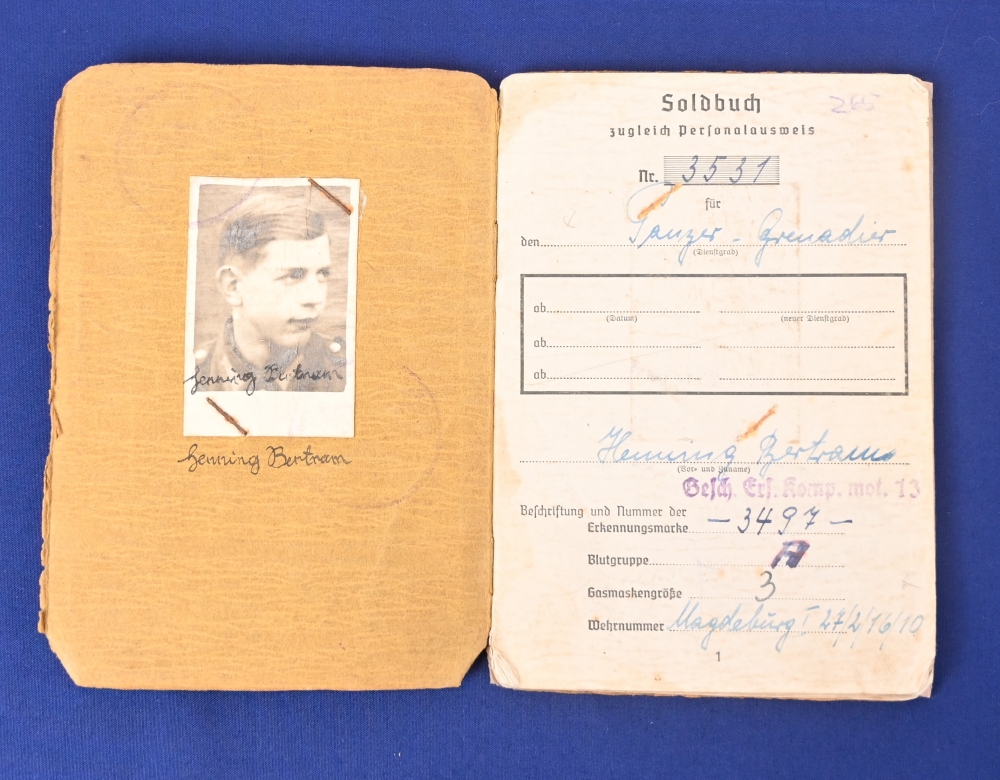 Henning Bertram
Henning Bertram
Soldbuch
265
zugleich Personalausweis
Nr. 3531
für
den Panzer-Grenadier
(Dienstgrad)
ab
(Datum) (neuer Dienstgrad)
ab
ab
Henning Bertram
(Vor- und Zuname)
Gesch. Ers. Komp. mot. 13
Beschriftung und Nummer der
Erkennungsmarke – 3497 –
Blutgruppe A
Gasmaskengröße 3
Wehrnummer Magdeburg I 27/2/16/10
1